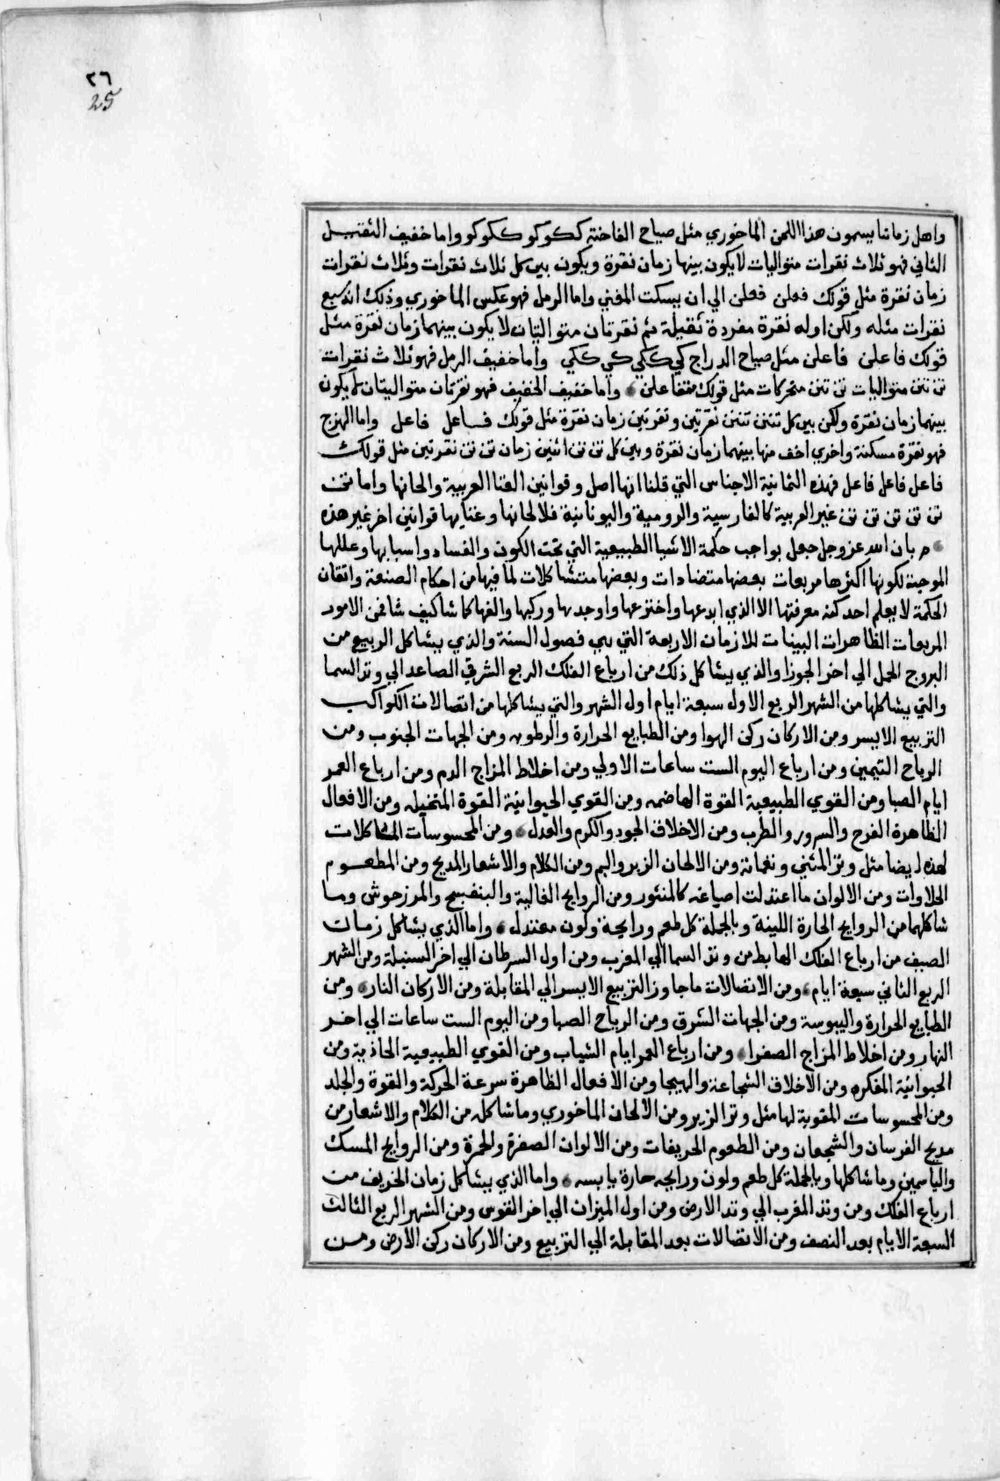 ٢٦
25
واهل زماننا يسمون هذا اللحن الماخوري مثل صياح الفاختة ككوكو ككوكو واما خفيف الثقيل
الثاني فهو ثلاث نقرات متواليات لا يكون بينها زمان نقرة ويكون بين كل ثلاث نقرات وثلاث نقرات
زمان نقرة مثل قولك فعلن فعلن الي ان يسكت المغني واما الرمل فهو عكس الماخوري وذلك انه سبع
نقرات مثله ولكن اوله نقرة مفردة ثقيلة ثم نقرتان متواليتان لا يكون بينهما زمان نقرة مثل
قولك فاعلن فاعلن مثل صياح الدراج كي ككي كي ككي واما خفيف الرمل فهو ثلاث نقرات
تن تنن متواليات تن تنن متحركات مثل قولك متفاعلن واما خفيف الخفيف فهو نقرتان متواليتان لا يكون
بينهما زمان نقرة ولكن بين كل تنن تنن نقرتين ونقرتين زمان نقرة مثل قولك فاعل فاعل واما الهزج
فهو نقرة مسكنة واخري اخف منها بينهما زمان نقرة وبين كل تن تن اثنين زمان تن تن نقرتين مثل قولك
فاعل فاعل فاعل فهذه الثمانية الاجناس التي قلنا انها اصل وقوانين الغنا العربية والحانها واما تن
تن تن تن تن تن غير العربية كالفارسية والرومية واليونانية فلالحانها وغنايها قوانين اخر غير هذه
م بان الله عز وجل جعل بواجب حكمة الاشيا الطبيعية التي تحت الكون والفساد واسبابها وعللها
الموجبة لكونها اكثرها مربعات بعضها متضادات وبعضها متشاكلات لما فيها من احكام الصنعة واتقان
الحكمة لا يعلم احد كنه معرفتها الا الذي ابدعها واخترعها واوجدها وركبها والفها كما شا كيف شا فمن الامور
المربعات الظاهرات البينات للازمان الاربعة التي هي فصول السنة والذي يشاكل الربيع من
البروج الحمل الي اخر الجوزا والذي يشاكل ذلك من ارباع الفلك الربع الشرقي الصاعد الي وتد السما
والتي يشاكلها من الشهر الربع الاول سبعة ايام اول الشهر والتي يشاكلها من اتصالات الكواكب
التربيع الايسر ومن الاركان ركن الهوا ومن الطبايع الحرارة والرطوبه ومن الجهات الجنوب ومن
الرياح التيمين ومن ارباع اليوم الست ساعات الاولي ومن اخلاط المزاج الدم ومن ارباع العمر
ايام الصبا ومن القوي الطبيعية القوة الهاضمه ومن القوي الحيوانية القوة المتخيله ومن الافعال
الظاهرة الفرح والسرور والطرب ومن الاخلاق الجود والكرم والعدل ومن المحسوسات المشاكلات
لهذه ايضا مثل وتر المثني ونغماته ومن الالحان الزير والبم ومن الكلام والاشعار المديح ومن المطعوم
الحلاوات ومن الالوان ما اعتدلت اصباغه كالمنثور ومن الروايح الغالية والبنفسج والمرزجوش وما
شاكلهما من الروايح الحارة اللينة وبالجملة كل طعم ورايحة ولون معتدل واما الذي يشاكل زمان
الصيف من ارباع الفلك الهابط من وتد السما الي المغرب ومن اول السرطان الي اخر السنبلة ومن الشهر
الربع الثاني سبعة ايام ومن الاتصالات ما جاوز التربيع الايسر الي المقابلة ومن الاركان النار ومن
الطبايع الحرارة واليبوسة ومن الجهات الشرق ومن الرياح الصبا ومن اليوم الست ساعات الي اخر
النهار ومن اخلاط المزاج الصفرا ومن ارباع العمر ايام الشباب ومن القوي الطبيعية الجاذبة ومن
الحيوانية المفكره ومن الاخلاق الشجاعة والهيجا ومن الافعال الظاهرة سرعة الحركة والقوة والجلد
ومن المحسوسات المقوية لها مثل وتر الزير ومن الالحان الماخوري وما شاكله من الكلام والاشعار من
مديح الفرسان والشجعان ومن الطعوم الحريفات ومن الالوان الصفرة والحمرة ومن الروايح المسك
والياسمين وما شاكلها وبالجملة كل طعم ولون ورايحه حارة يابسه واما الذي يشاكل زمان الخريف من
ارباع الفلك ومن وتد المغرب الي وتد الارض ومن اول الميزان الي اخر القوس ومن الشهر الربع الثالث
السبعة الايام بعد النصف ومن الاتصالات بعد المقابلة الي التربيع ومن الاركان ركن الارض ومن